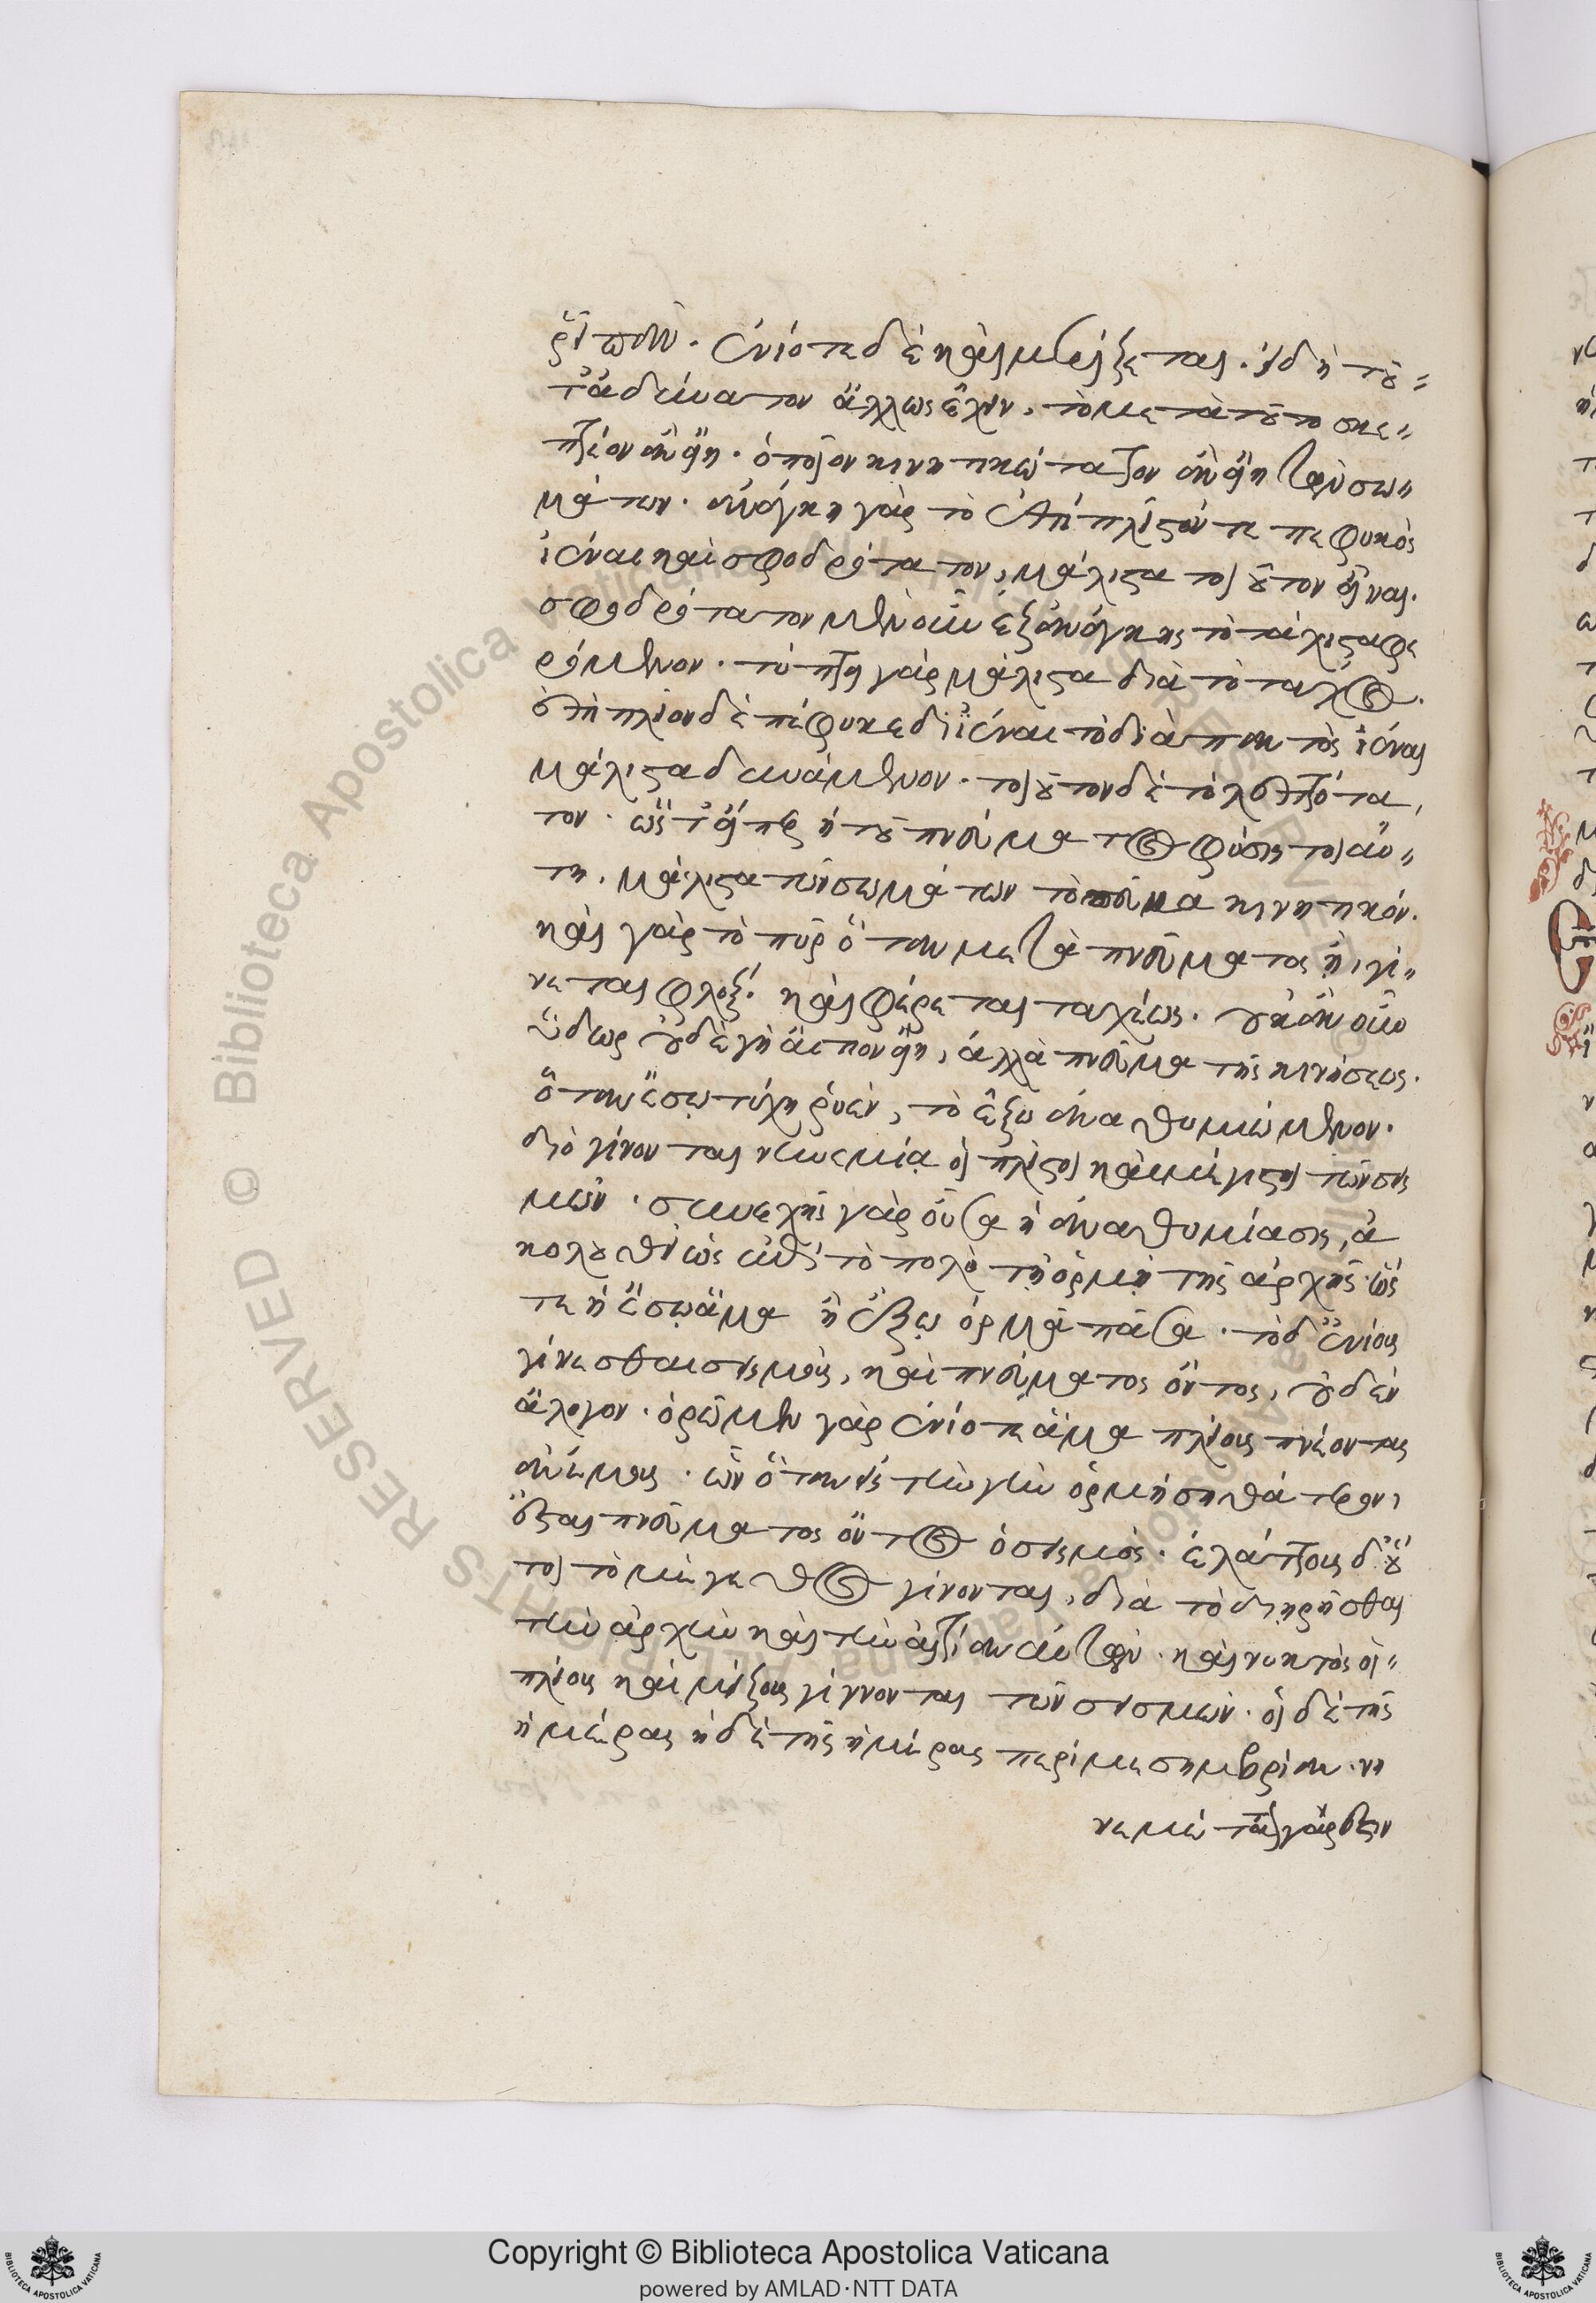 εἶπον. ἐνίοτε δὲ καὶ μερίζεται. εἰ δὴ τοῦ
τ' ἀδύνατον ἄλλως ἔχειν, τὸ μετὰ τοῦτο σκε
πτέον ἂν εἴη. ὁποῖον κινητικώτατον ἂν εἴη τῶν σω
μάτων. ἀνάγκη γὰρ τὸ ἐπὶ πλεῖστόν τε πεφυκὸς
ἰέναι καὶ σφοδρότατον, μάλιστα τοιοῦτον εἶναι.
σφοδρότατον μὲν οὖν ἐξ ἀνάγκης τὸ τάχιστα φε
ρόμενον. τύπτει γὰρ μάλιστα διὰ τὸ τάχος.
ἐπὶ πλεῖον δὲ πέφυκε διϊέναι τὸ διὰ παντὸς ἰέναι
μάλιστα δυνάμενον. τοιοῦτον δὲ τὸ λεπτότα
τον. ὥστ' εἴπερ ἡ τοῦ πνεύματος φύσις τοιαύ
τη, μάλιστα τῶν σωμάτων τὸ πνεῦμα κινητικόν.
καὶ γὰρ τὸ πῦρ ὅταν μετὰ πνεύματος ᾖ, γί
νεται φλόξ. καὶ φέρεται ταχέως. οὐκ ἂν οὖν
ὕδωρ οὐδὲ γῆ αἴτιον εἴη, ἀλλὰ πνεῦμα τῆς κινήσεως.
ὅταν ἔσω τύχῃ ῥυὲν, τὸ ἔξω ἀναθυμιώμενον.
διὸ γίνονται νηνεμίᾳ οἱ πλεῖστοι καὶ μέγιστοι τῶν σεισ
μῶν. συνεχὴς γὰρ οὖσα ἡ ἀναθυμίασις, ἀ
κολουθεῖ ὡς ἐπὶ τὸ πολὺ τῇ ὁρμῇ τῆς ἀρχῆς. ὥσ
τε ἢ ἔσω ἅμα ἢ ἔξω ὁρμᾷ πᾶσα. τὸ δ' ἐνίους
γίνεσθαι σεισμοὺς, καὶ πνεύματος ὄντος, οὐδὲν
ἄλογον. ὁρῶμεν γὰρ ἐνίοτε ἅμα πλείους πνέοντας
ἀνέμους. ὧν ὅταν εἰς τὴν γῆν ὁρμήσῃ θάτερον,
ἔσται πνεύματος ὄντος ὁ σεισμός. ἐλάττους δ' οὗ
τοι τὸ μέγεθος γίνονται, διὰ τὸ διῃρῆσθαι
τὴν ἀρχὴν καὶ τὴν αἰτίαν αὐτῶν. καὶ νυκτὸς οἱ
πλείους καὶ μείζους γίγνονται τῶν σεισμῶν. οἱ δὲ τῆς
ἡμέρας ἡ δὲ τῆς ἡμέρας περὶ μεσημβρίαν. νη
νεμώτατον γάρ ἐστιν